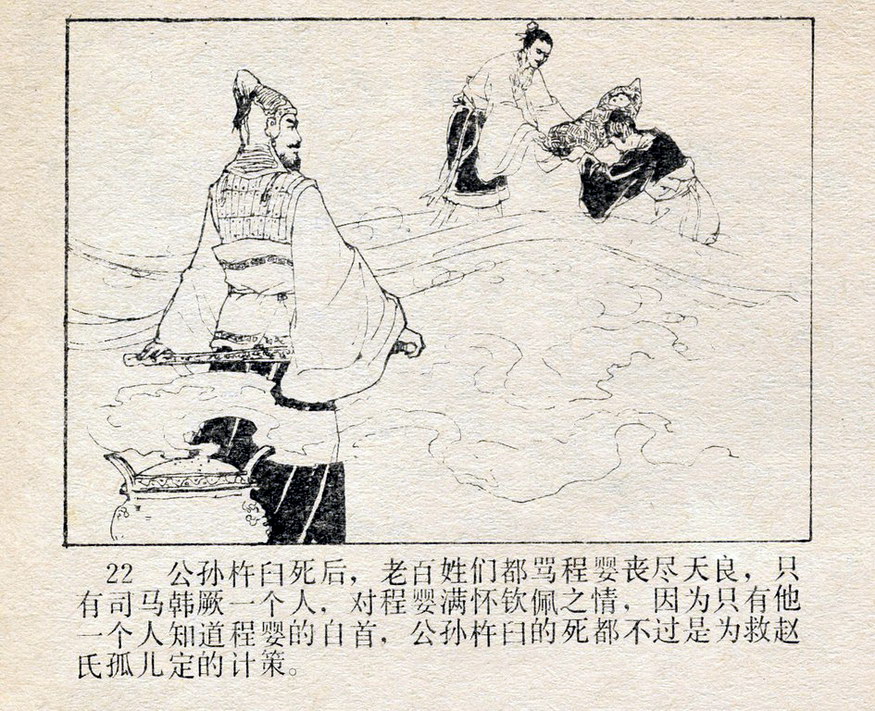 22 公孙杵臼死后，老百姓们都骂程婴丧尽天良，只
有司马韩厥一个人，对程婴满怀钦佩之情，因为只有他
一个人知道程婴的自首，公孙杵臼的死都不过是为救赵
氏孤儿定的计策。